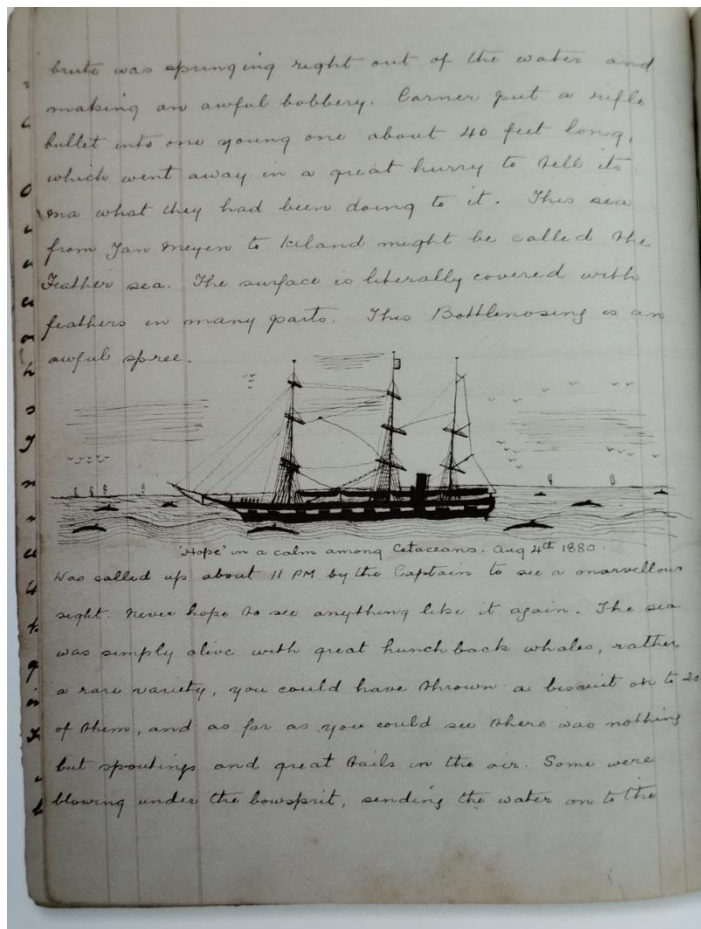 brute was springing right out of the water and
making an awful bobbery. Carner put a rifle
bullet into one young one about 40 feet long,
which went away in a great hurry to tell its
ma what they had been doing to it. This sea
from Jan Meyen to Iceland might be called the
Feather sea. The surface is literally covered with
feathers in many parts. This Bottlenosing is an
awful spree.
'Hope' in a calm among Cetaceans. Aug 4th 1880.
Was called up about 11 PM by the Captain to see a marvellous
sight. Never hope to see anything like it again. The sea
was simply alive with great hunchback whales, rather
a rare variety, you could have thrown a biscuit on to 20
of them, and as far as you could see there was nothing
but spoutings and great tails in the air. Some were
blowing under the bowsprit, sending the water on to the